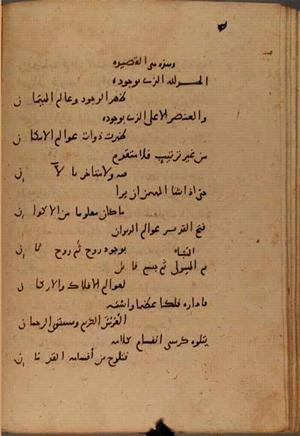 وهذه هي القصيدة
الحمد لله الذي بوجوده
ظهر الوجود وعالم الهيمان
والعنصر الاعلى الذي بوجوده
ظهرت ذوات عوالم الامكان
من غير ترتيب فلا متقدم
فيه ولا متأخر بالآن
حتى اذا شاء المهيمن ان يرى
ما كان معلوما من الاكوان
فتح القدير عوالم الديوان
بوجود روح ثم روح ثان
ثم الهباء
ثم الهيولى ثم جسم قابل
لعوالم الافلاك والاركان
فاداره فلكا عظيما واسمه
العرش الكريم ومستوى الرحمان
يتلوه كرسي انقسام كلامه
فتلوح من اقسامه القدمان